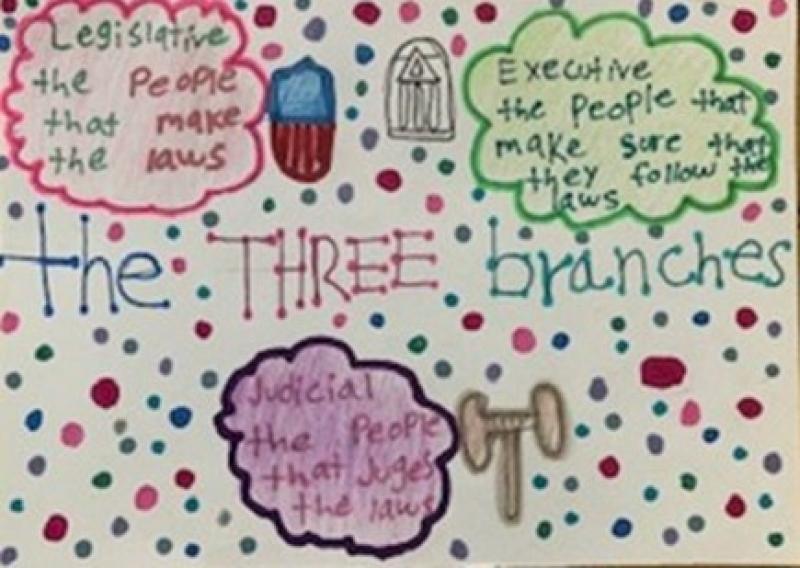 Legislative
the People
that make
the laws
Executive
the people that
make sure that
they follow the
laws
the THREE branches
Judicial
the People
that Juges
the laws